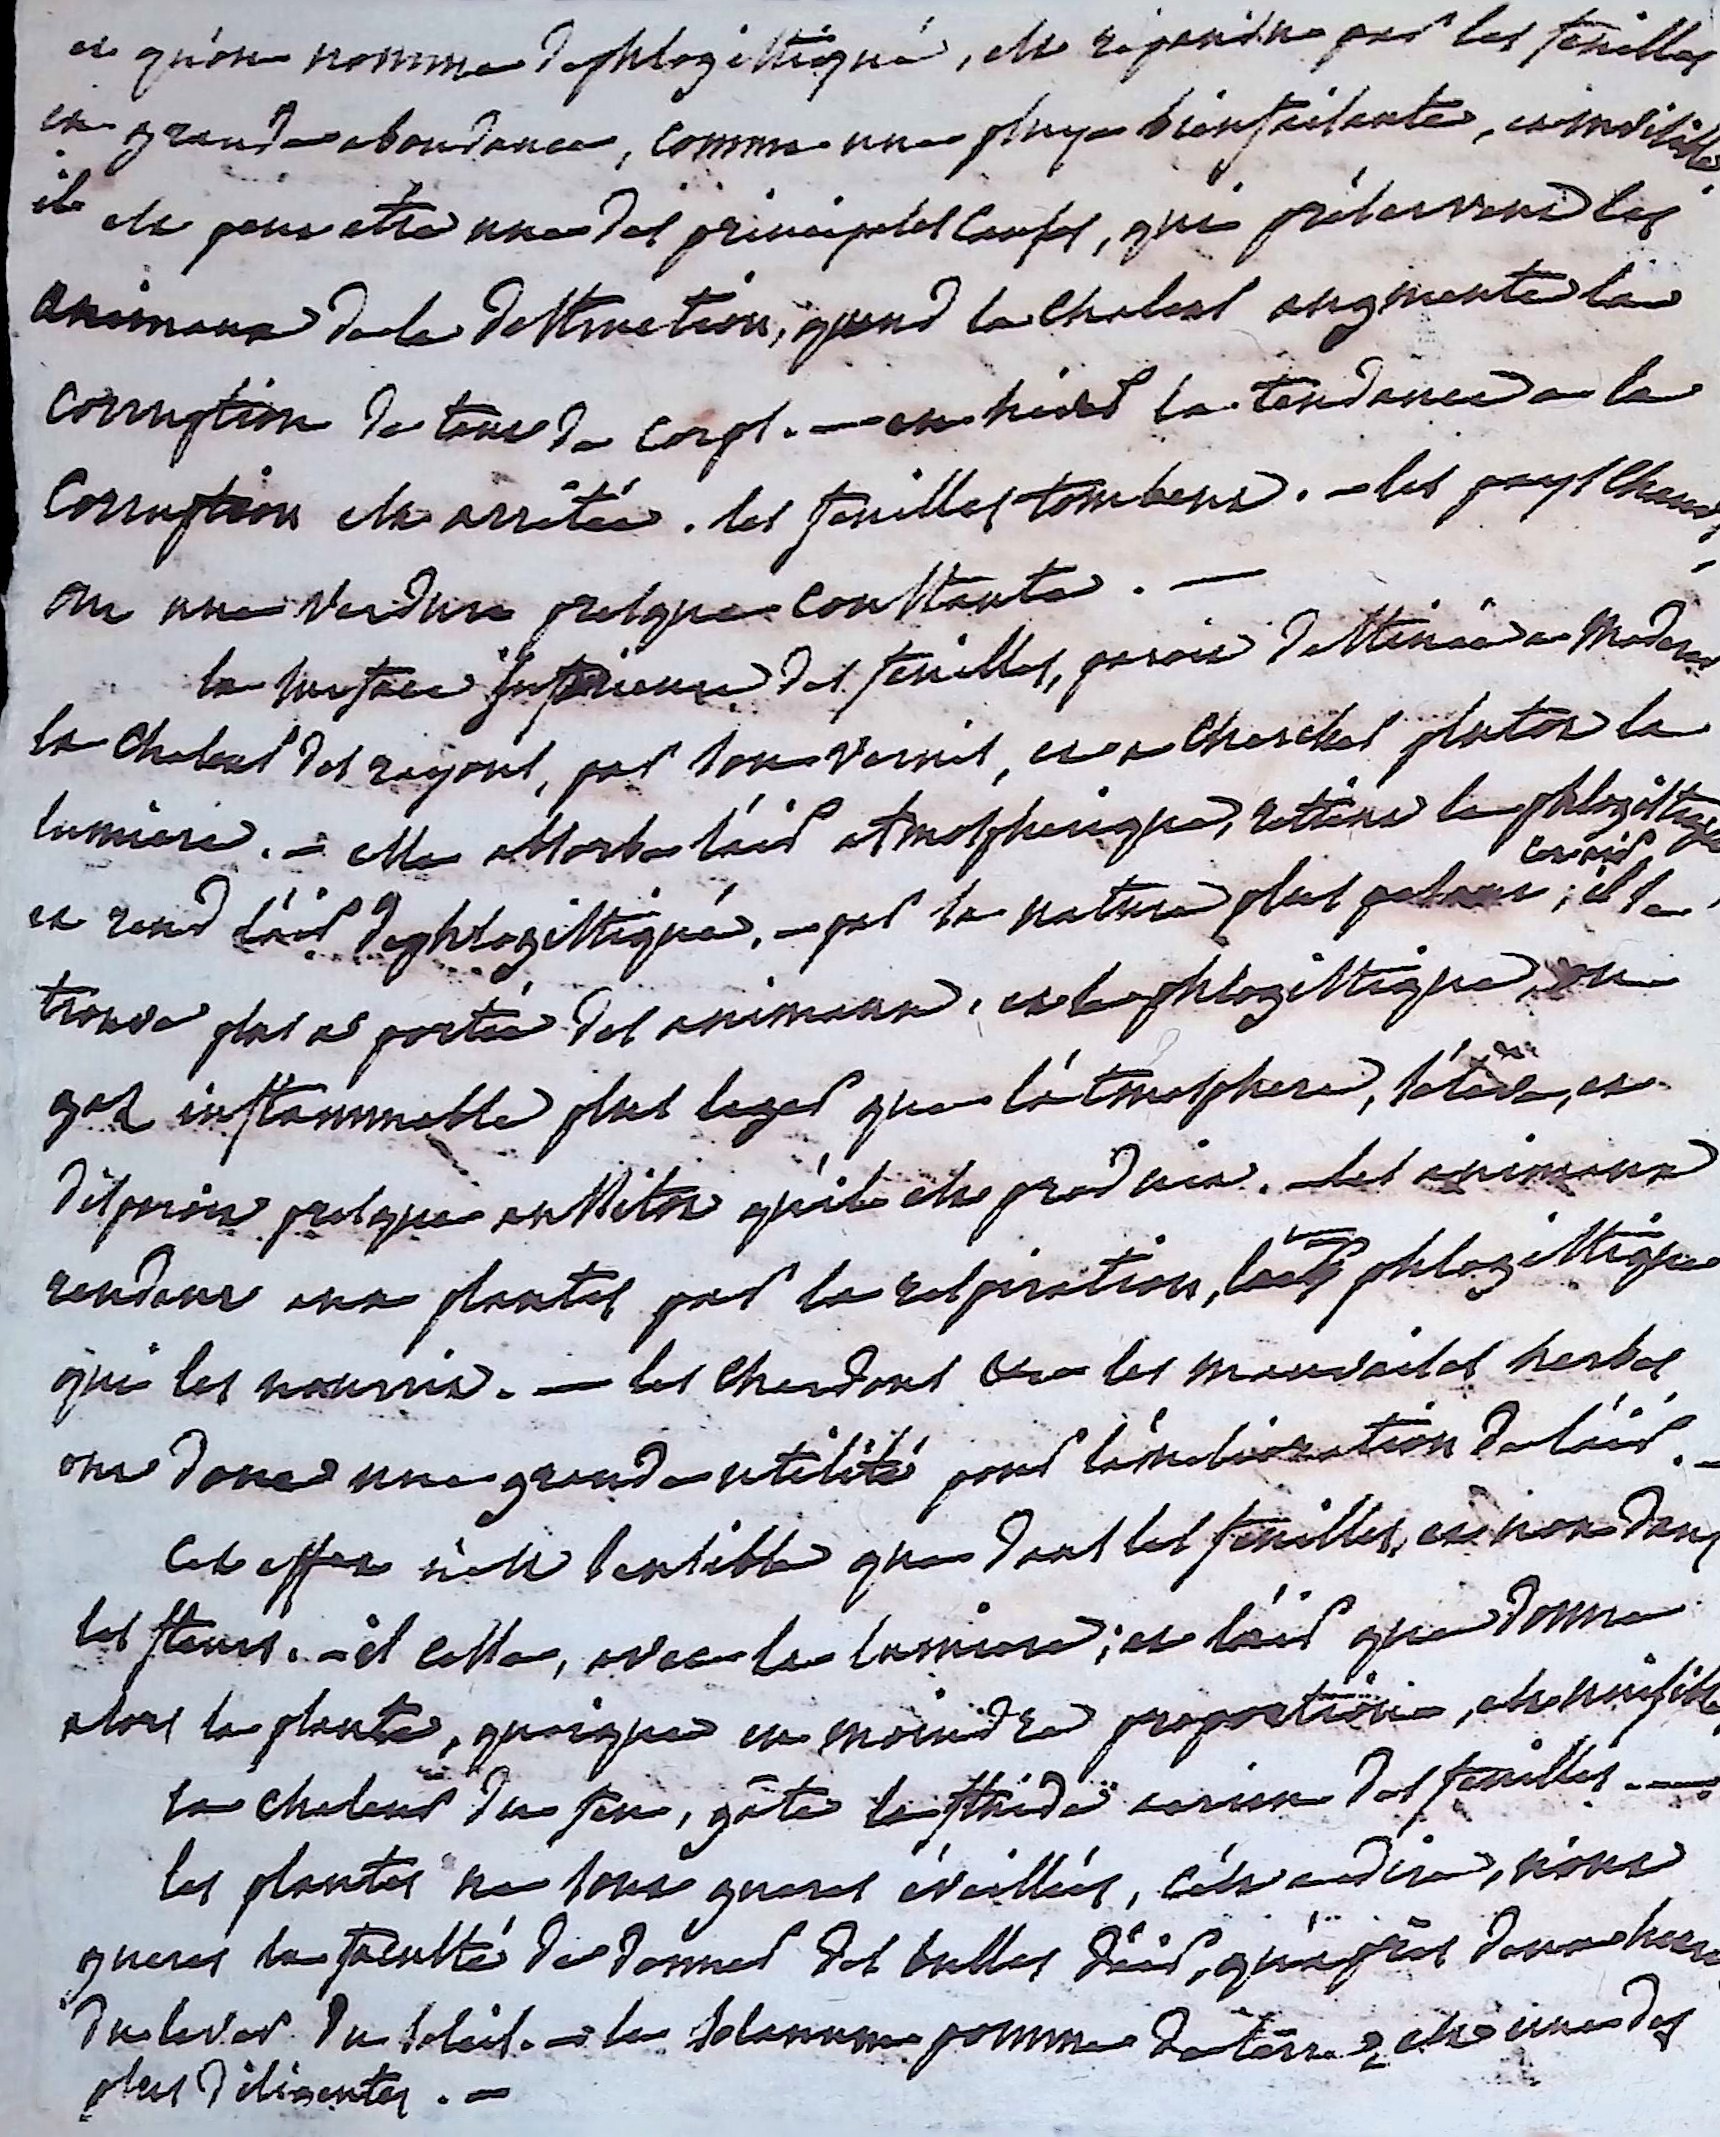 et qu'on nomme dephlogistiqué, est repandu par les feuilles
en grande abondance, comme une pluye bienfaisante, et invisible
il est peut etre une des principales causes, qui préservent les
animaux de la destruction, quand la chaleur augmente la
corruption de tant de corps. — en hiver la tendance a la
corruption est arrêtée. les feuilles tombent. — les pays chauds
ont une verdure presque constante. —
la surface superieure des feuilles, paroit destinée a moderer
la chaleur des rayons, par son vernis, et a chercher plutot la
lumiere. — elle absorbe l'air atmospherique, retient le phlogistique
et rend l'air dephlogistiqué. — par sa nature plus pesant, cet air, il se
trouve plus a portée des animaux. et le phlogistique, ou
gaz inflammable plus leger que l'atmosphere, s'éleve, et
disparoit presque aussitot qu'il est produit. — les animaux
rendent aux plantes par la respiration, l'air phlogistiqué
qui les nourrit. — les chardons et les mauvaises herbes
ont donc une grande utilité pour l'amelioration de l'air. —
cet effet n'est sensible que dans les feuilles, et non dans
les fleurs. — il cesse, avec la lumiere; et l'air que donne
alors la plante, quoique en moindre proportion, est nuisible
la chaleur du feu, gâte le fluide aerien des feuilles. —
les plantes ne sont gueres éveillées, c'est a dire, n'ont
gueres la faculté de donner des bulles d'air, qu'aprés deux heures
du lever du soleil. — le solanum pomme de terre, est une des
plus diligentes. —